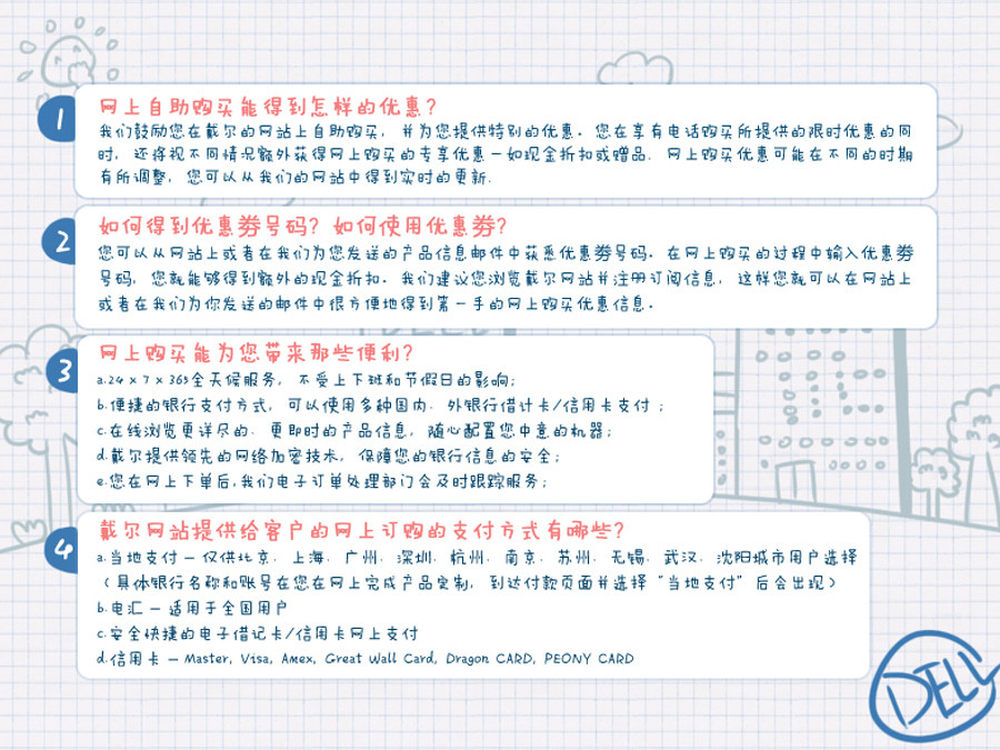 1
网上自助购买能得到怎样的优惠?
我们鼓励您在戴尔的网站上自助购买, 并为您提供特别的优惠。您在享有电话购买所提供的限时优惠的同
时, 还将视不同情况额外获得网上购买的专享优惠—如现金折扣或赠品. 网上购买优惠可能在不同的时期
有所调整, 您可以从我们的网站中得到实时的更新.
2
如何得到优惠券号码? 如何使用优惠券?
您可以从网站上或者在我们为您发送的产品信息邮件中获悉优惠券号码。在网上购买的过程中输入优惠券
号码, 您就能够得到额外的现金折扣。我们建议您浏览戴尔网站并注册订阅信息, 这样您就可以在网站上
或者在我们为你发送的邮件中很方便地得到第一手的网上购买优惠信息。
3
网上购买能为您带来那些便利?
a.24×7×365全天候服务, 不受上下班和节假日的影响;
b.便捷的银行支付方式, 可以使用多种国内、外银行借计卡/信用卡支付;
c.在线浏览更详尽的、更即时的产品信息, 随心配置您中意的机器;
d.戴尔提供领先的网络加密技术, 保障您的银行信息的安全;
e.您在网上下单后,我们电子订单处理部门会及时跟踪服务;
4
戴尔网站提供给客户的网上订购的支付方式有哪些?
a.当地支付—仅供北京、上海、广州、深圳、杭州、南京、苏州、无锡、武汉、沈阳城市用户选择
(具体银行名称和账号在您在网上完成产品定制, 到达付款页面并选择“当地支付”后会出现)
b.电汇—适用于全国用户
c.安全快捷的电子借记卡/信用卡网上支付
d.信用卡—Master, Visa, Amex, Great Wall Card, Dragon CARD, PEONY CARD
DELL